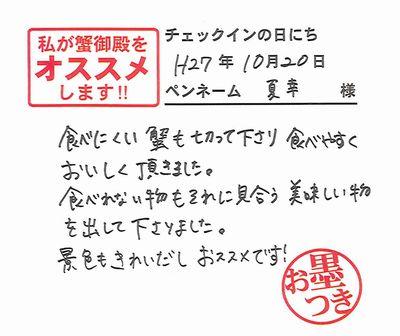 私が蟹御殿を
オススメ
します!!
チェックインの日にち
H27年10月20日
ペンネーム 夏幸 様
食べにくい蟹も切って下さり食べやすく
おいしく頂きました。
食べれない物もそれに見合う美味しい物
を出して下さりました。
景色もきれいだし おススメです!
お墨つき